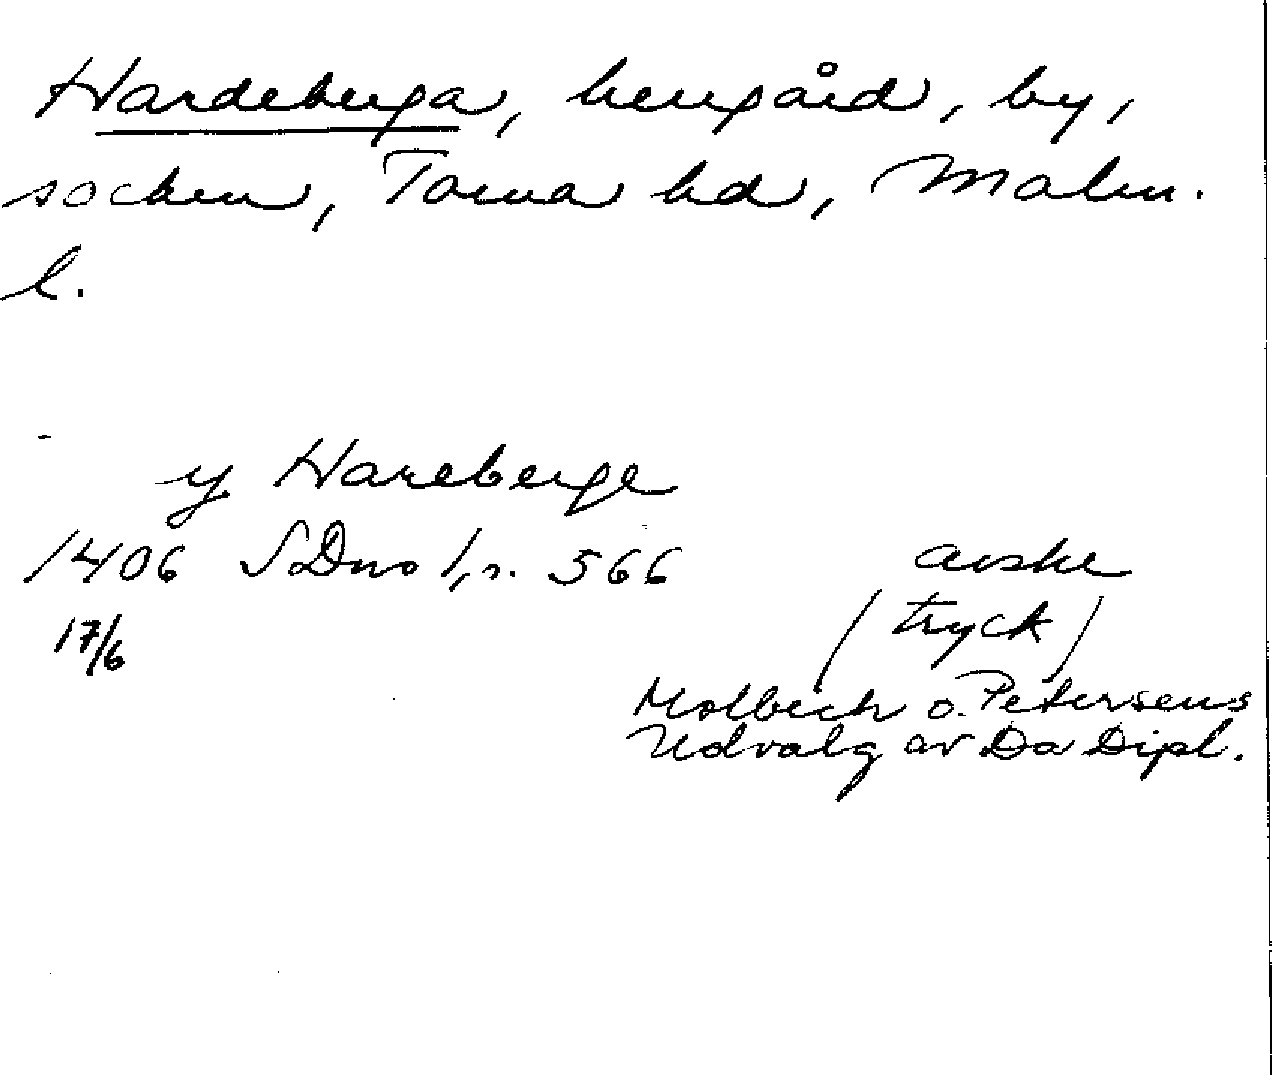 Hardeberga, herrgård, by,
socken, Torna hd, Malm.
l.
y Hareberge
1406 SDns 1, s. 566 avskr
17/6 (tryck)
Molbech o. Petersens
Udvalg av Da Dipl.